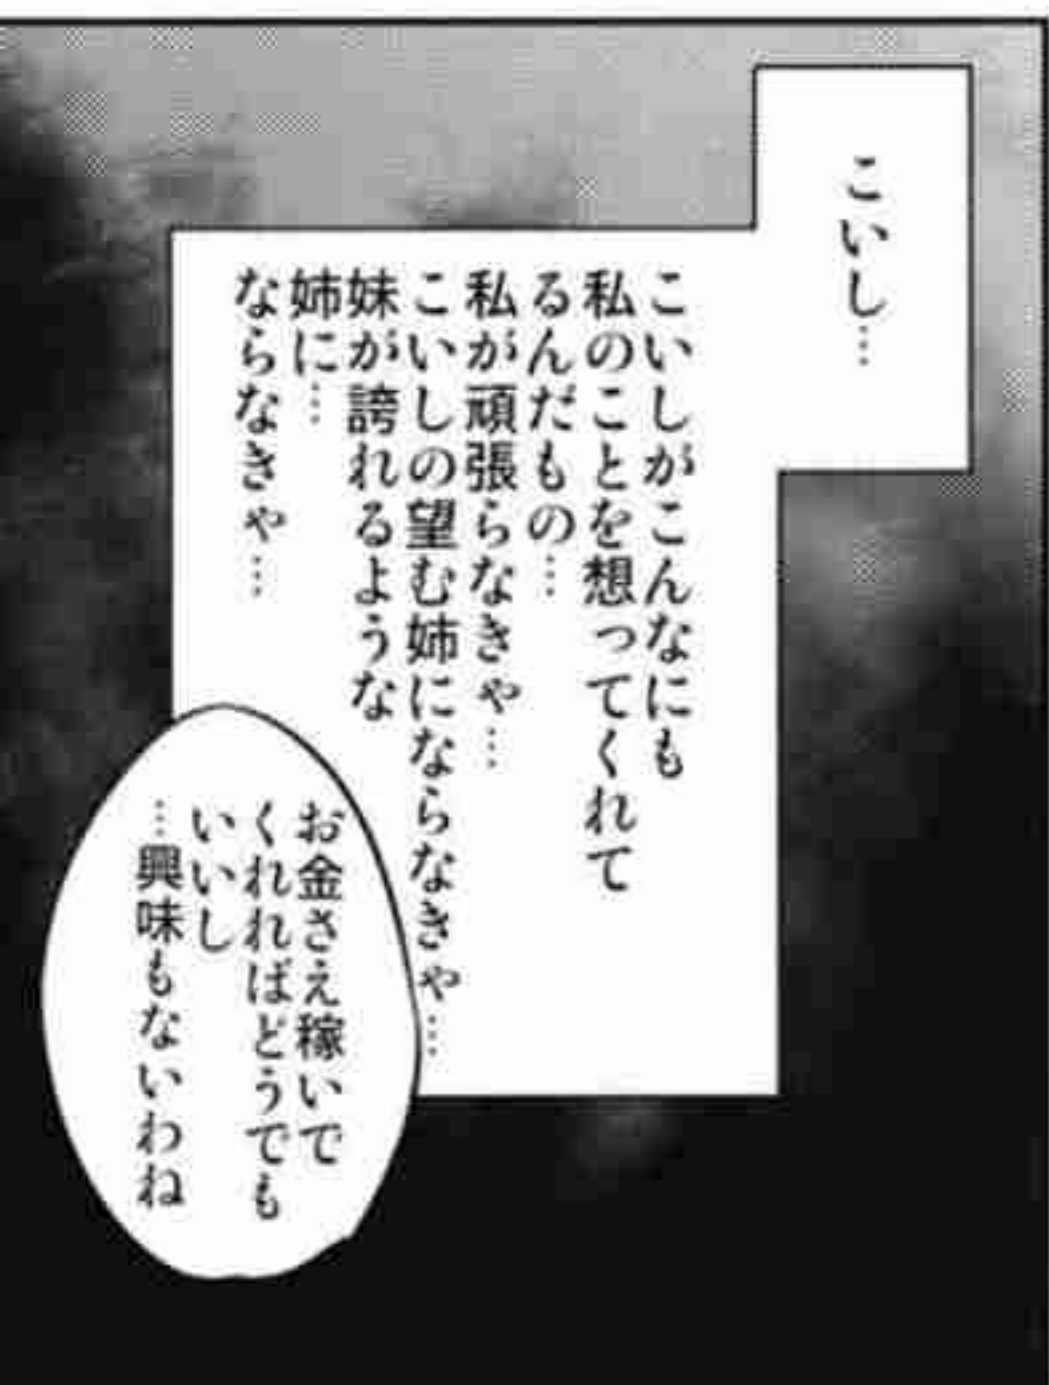 こいし…
こいしがこんなにも
私のことを想ってくれて
るんだもの…
私が頑張らなきゃ…
こいしの望む姉にならなきゃ…
妹が誇れるような
姉に…
ならなきゃ…
お金さえ稼いで
くれればどうでも
いいし
…興味もないわね